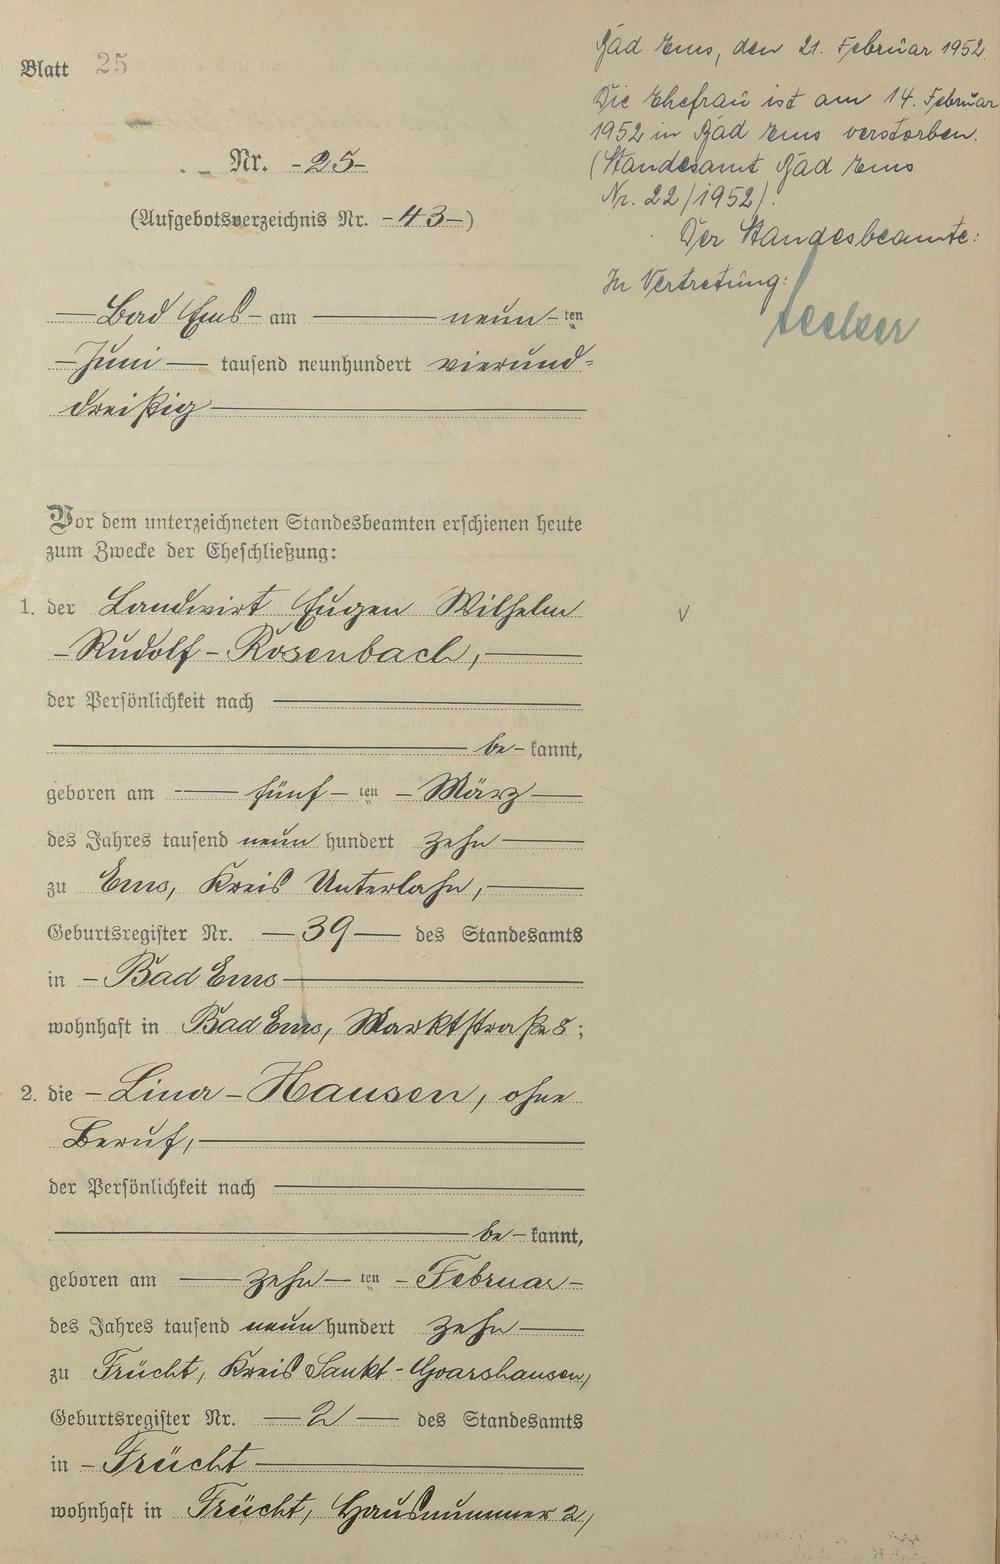 Blatt 25
Nr. -25-
(Aufgebotsverzeichnis Nr. -43-)
Bad Ems, den 21. Februar 1952.
Die Ehefrau ist am 14. Februar
1952 in Bad Ems verstorben.
(Standesamt Bad Ems
Nr. 22/1952).
Der Standesbeamte:
In Vertretung:
Bad Ems - am neun-ten
Juni tausend neunhundert vierund-
dreißig
Vor dem unterzeichneten Standesbeamten erschienen heute
zum Zwecke der Eheschließung:
1. der Landwirt Eugen Wilhelm
-Rudolf-Rosenbach,
der Persönlichkeit nach
be-kannt,
geboren am fünf-ten - März
des Jahres tausend neun hundert zehn
zu Ems, Kreis Unterlahn,
Geburtsregister Nr. 39 des Standesamts
in - Bad Ems
wohnhaft in Bad Ems, Marktstraße 8;
2. die - Lina - Hausen, ohne
Beruf,
der Persönlichkeit nach
be-kannt,
geboren am zehn-ten - Februar-
des Jahres tausend neun hundert zehn
zu Frücht, Kreis Sankt-Goarshausen,
Geburtsregister Nr. 2 des Standesamts
in - Frücht
wohnhaft in Frücht, Hausnummer 2,